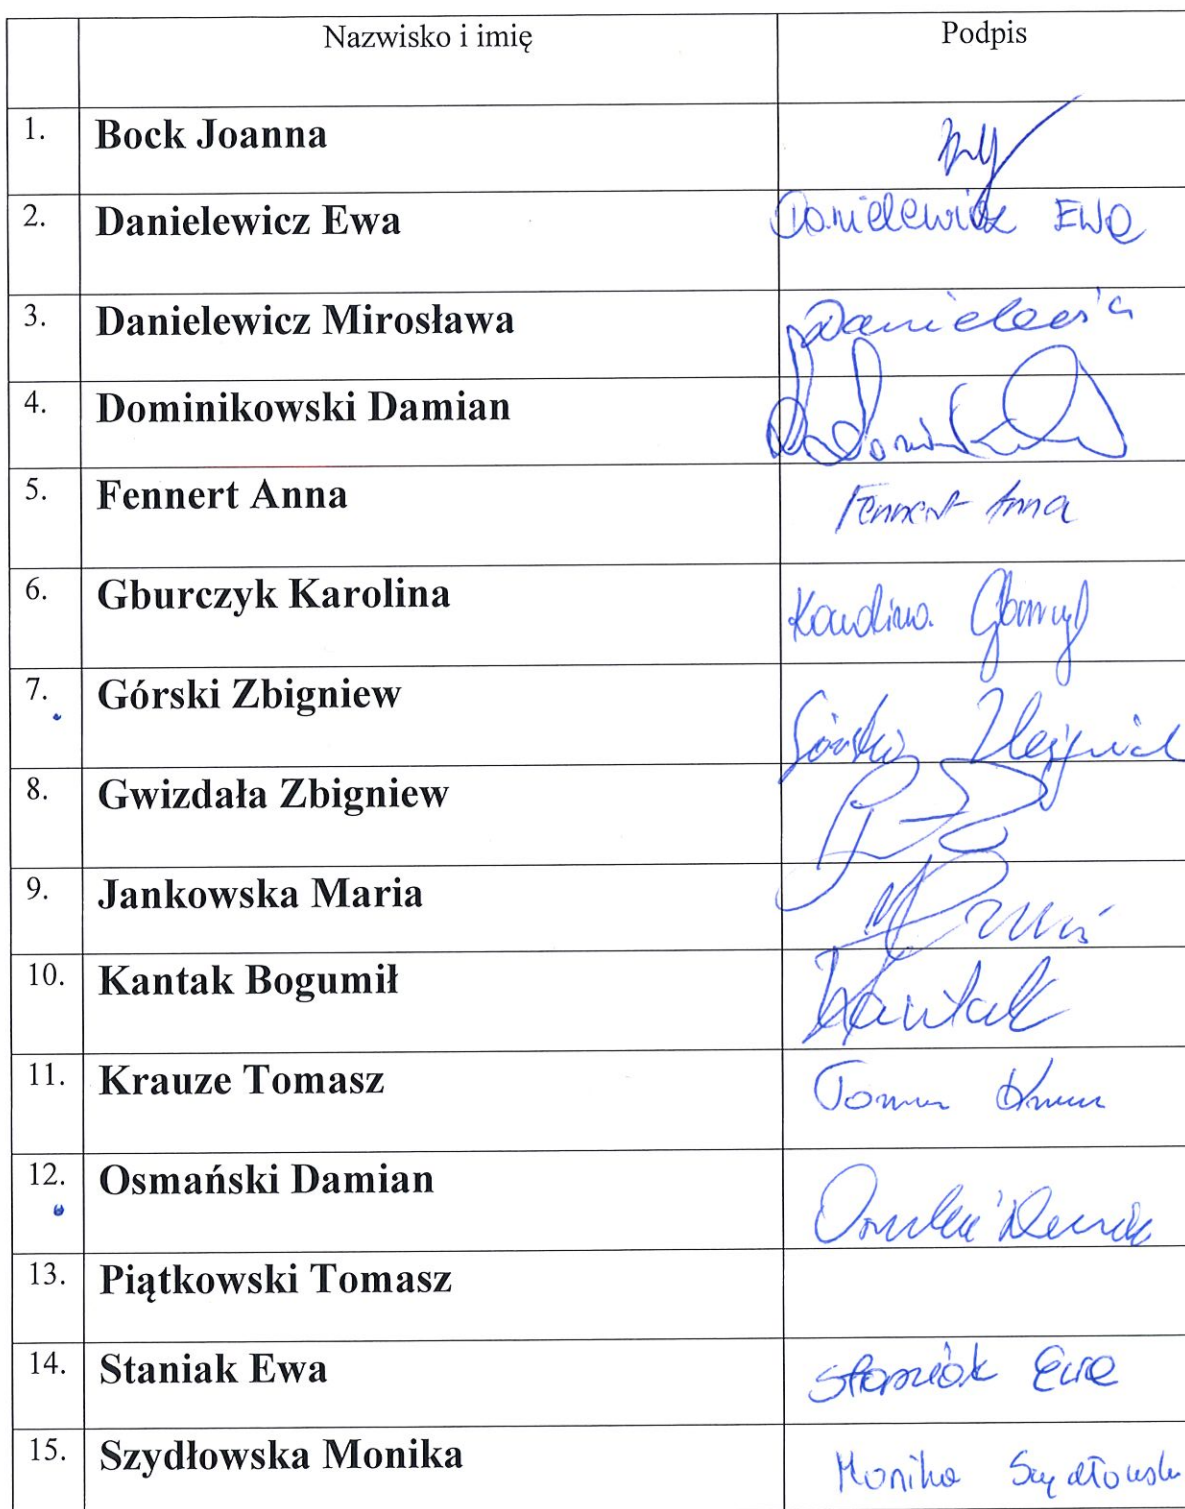 Nazwisko i imię Podpis
1. Bock Joanna
2. Danielewicz Ewa Danielewicz Ewa
3. Danielewicz Mirosława
4. Dominikowski Damian
5. Fennert Anna Fennert Anna
6. Gburczyk Karolina Karolina
7. Górski Zbigniew Górski Zbigniew
8. Gwizdała Zbigniew
9. Jankowska Maria
10. Kantak Bogumił Kantak
11. Krauze Tomasz
12. Osmański Damian
13. Piątkowski Tomasz
14. Staniak Ewa Staniak Ewa
15. Szydłowska Monika Monika Szydłowska